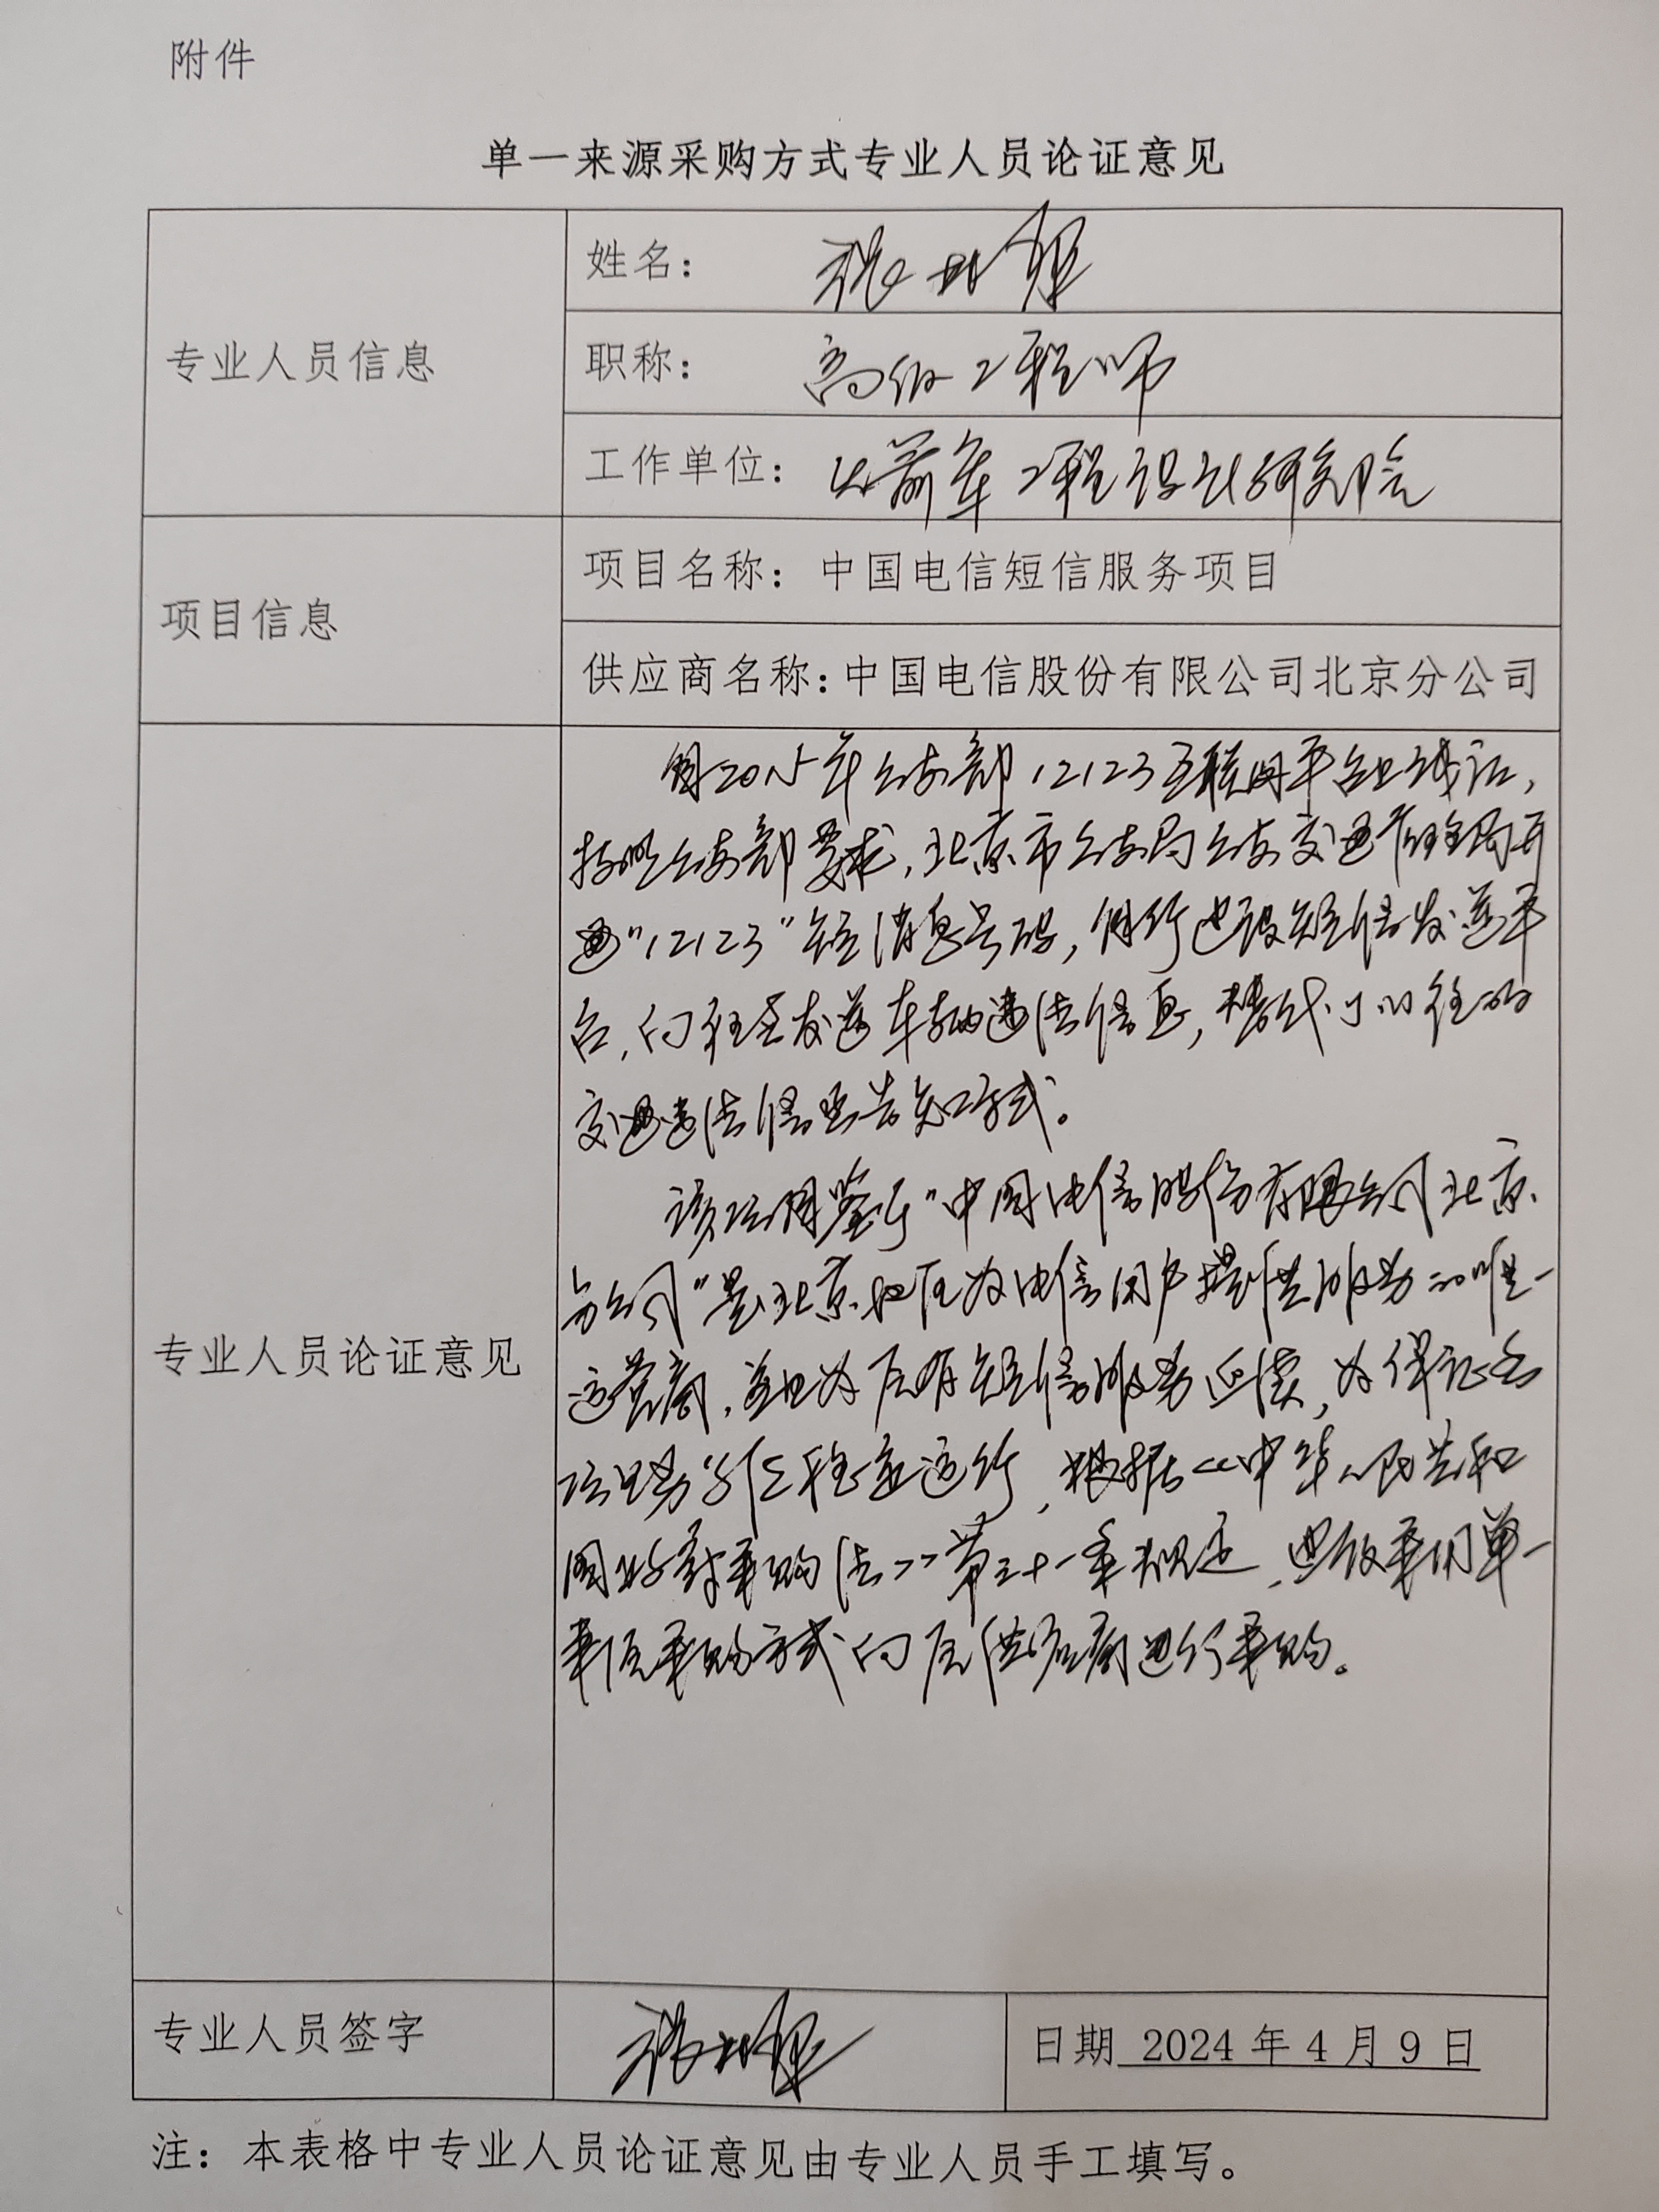 附件
单一来源采购方式专业人员论证意见
专业人员信息
姓名：
职称： 高级工程师
工作单位： 火箭军工程设计研究院
项目信息
项目名称：中国电信短信服务项目
供应商名称：中国电信股份有限公司北京分公司
专业人员论证意见
自2015年公安部12123互联网平台上线后，
按照公安部要求，北京市公安局公安交通管理局开
通“12123”短消息号码，建设短信发送平
台，向社会发送车辆违法信息，替代了以往的
交通违法信息告知方式。
该项目鉴于“中国电信股份有限公司北京
分公司”是北京地区为电信用户提供服务的唯一
运营商，并且为原有短信服务延续，为保证各
项业务系统稳定运行，根据《中华人民共和
国政府采购法》第三十一条规定，建议采用单一
来源采购方式向原供应商进行采购。
专业人员签字
日期 2024年4月9日
注：本表格中专业人员论证意见由专业人员手工填写。